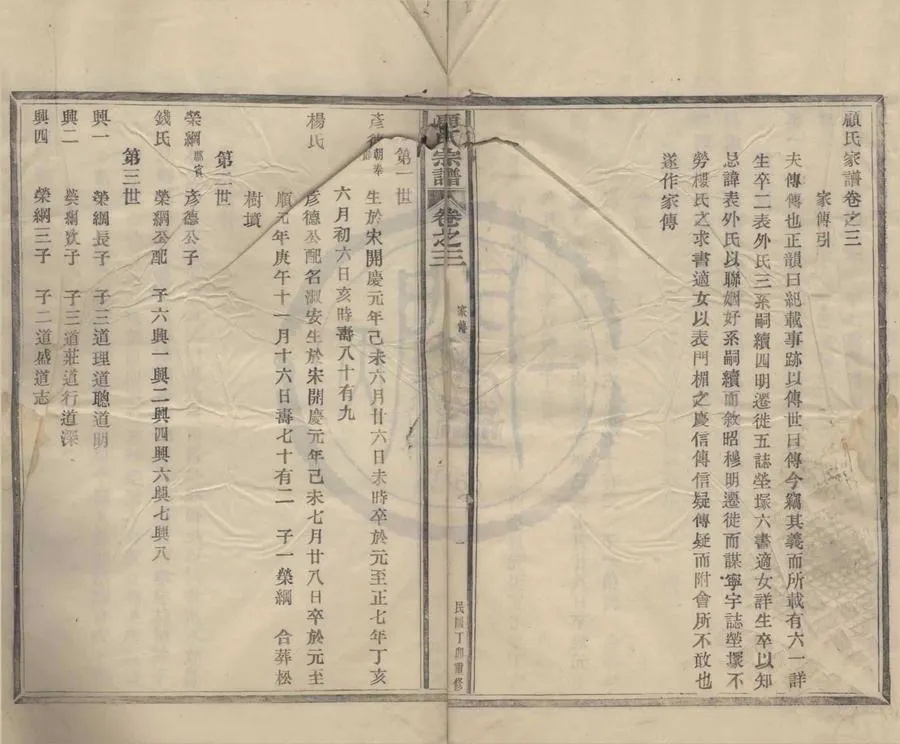 顧氏家譜卷之三
家傳引
夫傳傳也正韻曰紀載事跡以傳世曰傳今竊其義而所載有六一詳
生卒二表外氏三系嗣續四明遷徙五誌塋塚六書適女詳生卒以知
忌諱表外氏以聯姻好系嗣續而敘昭穆明遷徙而謀寧宇誌塋塚不
勞樱氏之求書適女以表門楣之慶信傳信疑傳疑而附會所不敢也
遂作家傳
顧氏宗譜
卷之三
家傳
一
民國丁卯重修
第一世
彥德 朝奉郎 生於宋開慶元年己未六月廿六日未時卒於元至正七年丁亥
六月初六日亥時壽八十有九
楊氏 彥德公配名淑安生於宋開慶元年己未七月廿八日卒於元至
順元年庚午十一月十六日壽七十有二 子一榮綱 合葬松
樹墳
第二世
榮綱 郡賓 彥德公子
錢氏 榮綱公配 子六興一興二興四興六興七興八
第三世
興一 榮綱長子 子三道理道聰道明
興二 榮綱次子 子三道莊道行道深
興四 榮綱三子 子二道盛道志